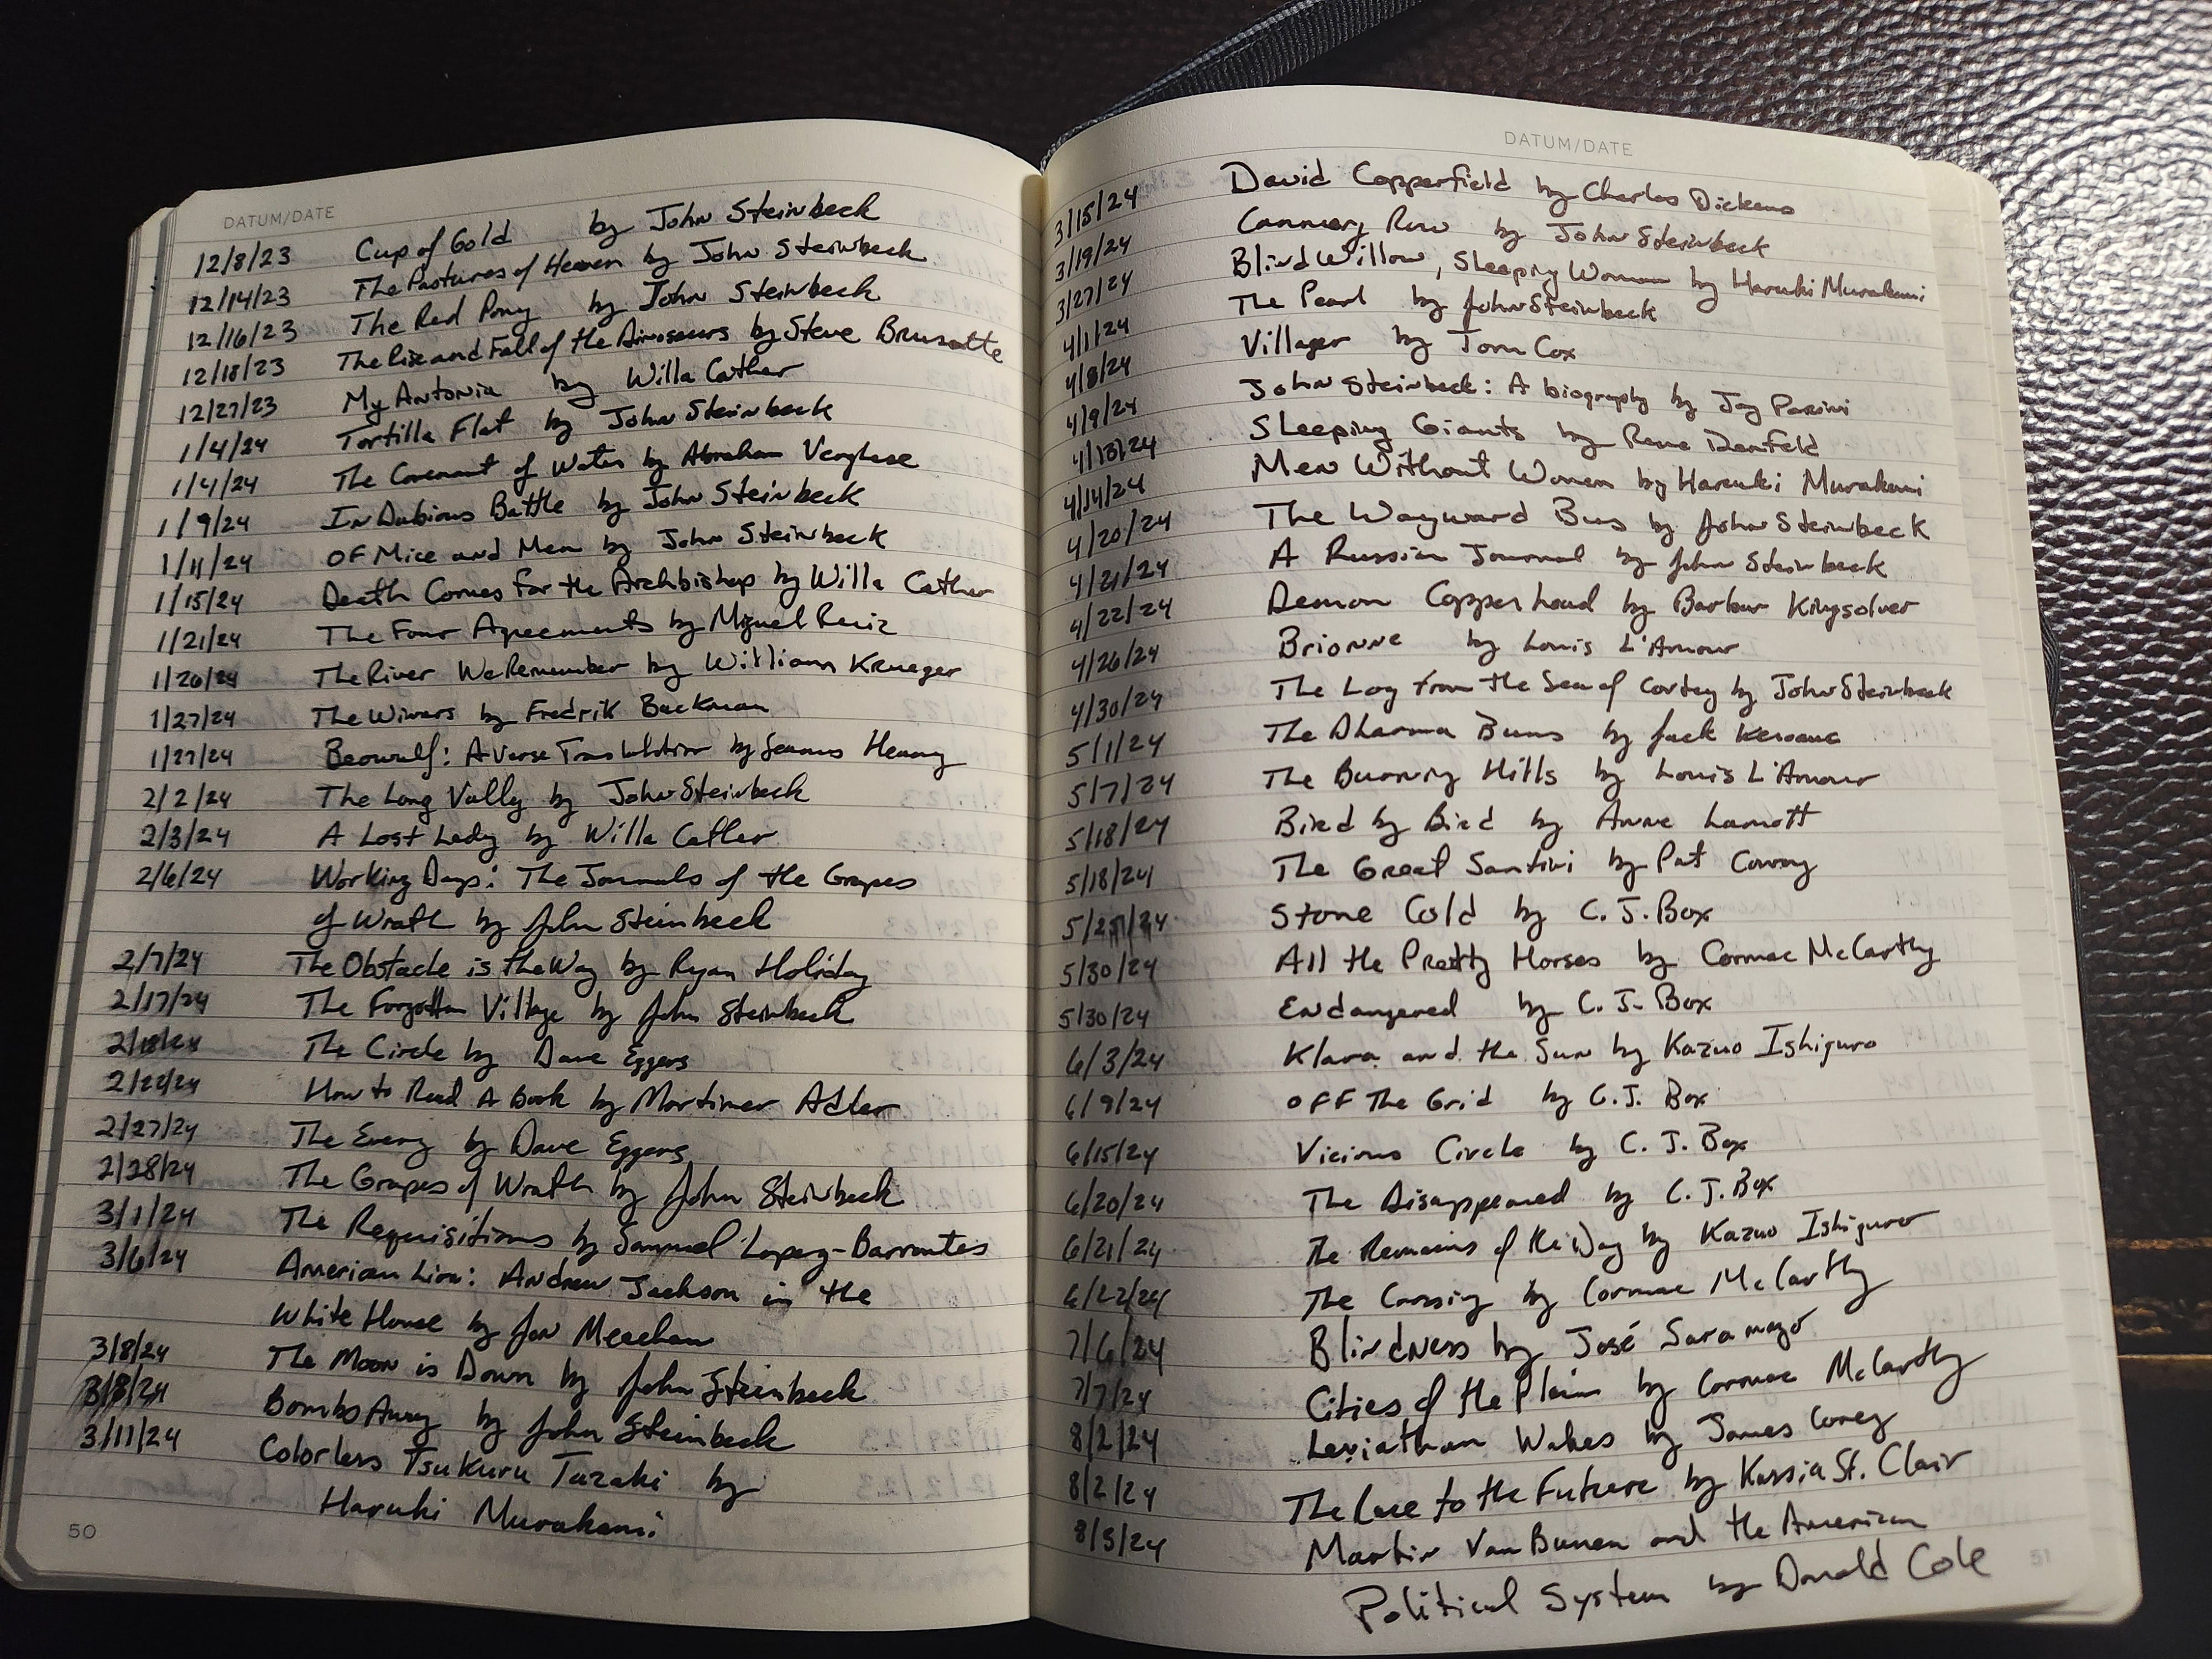 DATUM/DATE
12/8/23 Cup of Gold by John Steinbeck
12/14/23 The Pastures of Heaven by John Steinbeck
12/16/23 The Red Pony by John Steinbeck
12/18/23 The Rise and Fall of the Dinosaurs by Steve Brusatte
12/27/23 My Antonia by Willa Cather
1/4/24 Tortilla Flat by John Steinbeck
1/4/24 The Covenant of Water by Abraham Verghese
1/9/24 In Dubious Battle by John Steinbeck
1/11/24 Of Mice and Men by John Steinbeck
1/15/24 Death Comes for the Archbishop by Willa Cather
1/21/24 The Four Agreements by Miguel Ruiz
1/26/24 The River We Remember by William Krueger
1/27/24 The Winners by Fredrik Backman
1/27/24 Beowulf: A Verse Translation by Seamus Heaney
2/2/24 The Long Vally by John Steinbeck
2/3/24 A Lost Lady by Willa Cather
2/6/24 Working Days: The Journals of the Grapes
of Wrath by John Steinbeck
2/7/24 The Obstacle is the Way by Ryan Holiday
2/17/24 The Forgotten Village by John Steinbeck
2/18/24 The Circle by Dave Eggers
2/22/24 How to Read A Book by Mortimer Adler
2/27/24 The Every by Dave Eggers
2/28/24 The Grapes of Wrath by John Steinbeck
3/1/24 The Requisitions by Samuel Lopez-Barrantes
3/6/24 American Lion: Andrew Jackson in the
White House by Jon Meacham
3/8/24 The Moon is Down by John Steinbeck
3/8/24 Bombs Away by John Steinbeck
3/11/24 Colorless Tsukuru Tazaki by
Haruki Murakami
50
DATUM/DATE
3/15/24 David Copperfield by Charles Dickens
3/19/24 Cannery Row by John Steinbeck
3/27/24 Blind Willow, Sleeping Woman by Haruki Murakami
4/1/24 The Pearl by John Steinbeck
4/8/24 Villager by Tom Cox
4/9/24 John Steinbeck: A biography by Jay Parini
4/10/24 Sleeping Giants by Rene Denfeld
4/14/24 Men Without Women by Haruki Murakami
4/20/24 The Wayward Bus by John Steinbeck
4/21/24 A Russian Journal by John Steinbeck
4/22/24 Demon Copperhead by Barbar Kingsolver
4/26/24 Brionne by Louis L'Amour
4/30/24 The Log from the Sea of Cortez by John Steinbeck
5/1/24 The Dharma Bums by Jack Kerouac
5/7/24 The Burning Hills by Louis L'Amour
5/18/24 Bird by Bird by Anne Lamott
5/18/24 The Great Santini by Pat Conroy
5/25/24 Stone Cold by C. J. Box
5/30/24 All the Pretty Horses by Cormac McCarthy
5/30/24 Endangered by C. J. Box
6/3/24 Klara and the Sun by Kazuo Ishiguro
6/9/24 Off The Grid by C. J. Box
6/15/24 Vicious Circle by C. J. Box
6/20/24 The Disappeared by C. J. Box
6/21/24 The Remains of the Day by Kazuo Ishiguro
6/22/24 The Crossing by Cormac McCarthy
7/6/24 Blindness by José Saramago
7/7/24 Cities of the Plain by Cormac McCarthy
8/2/24 Leviathan Wakes by James Corey
8/2/24 The Race to the Future by Kassia St. Clair
8/5/24 Martin Van Buren and the American
Political System by Donald Cole